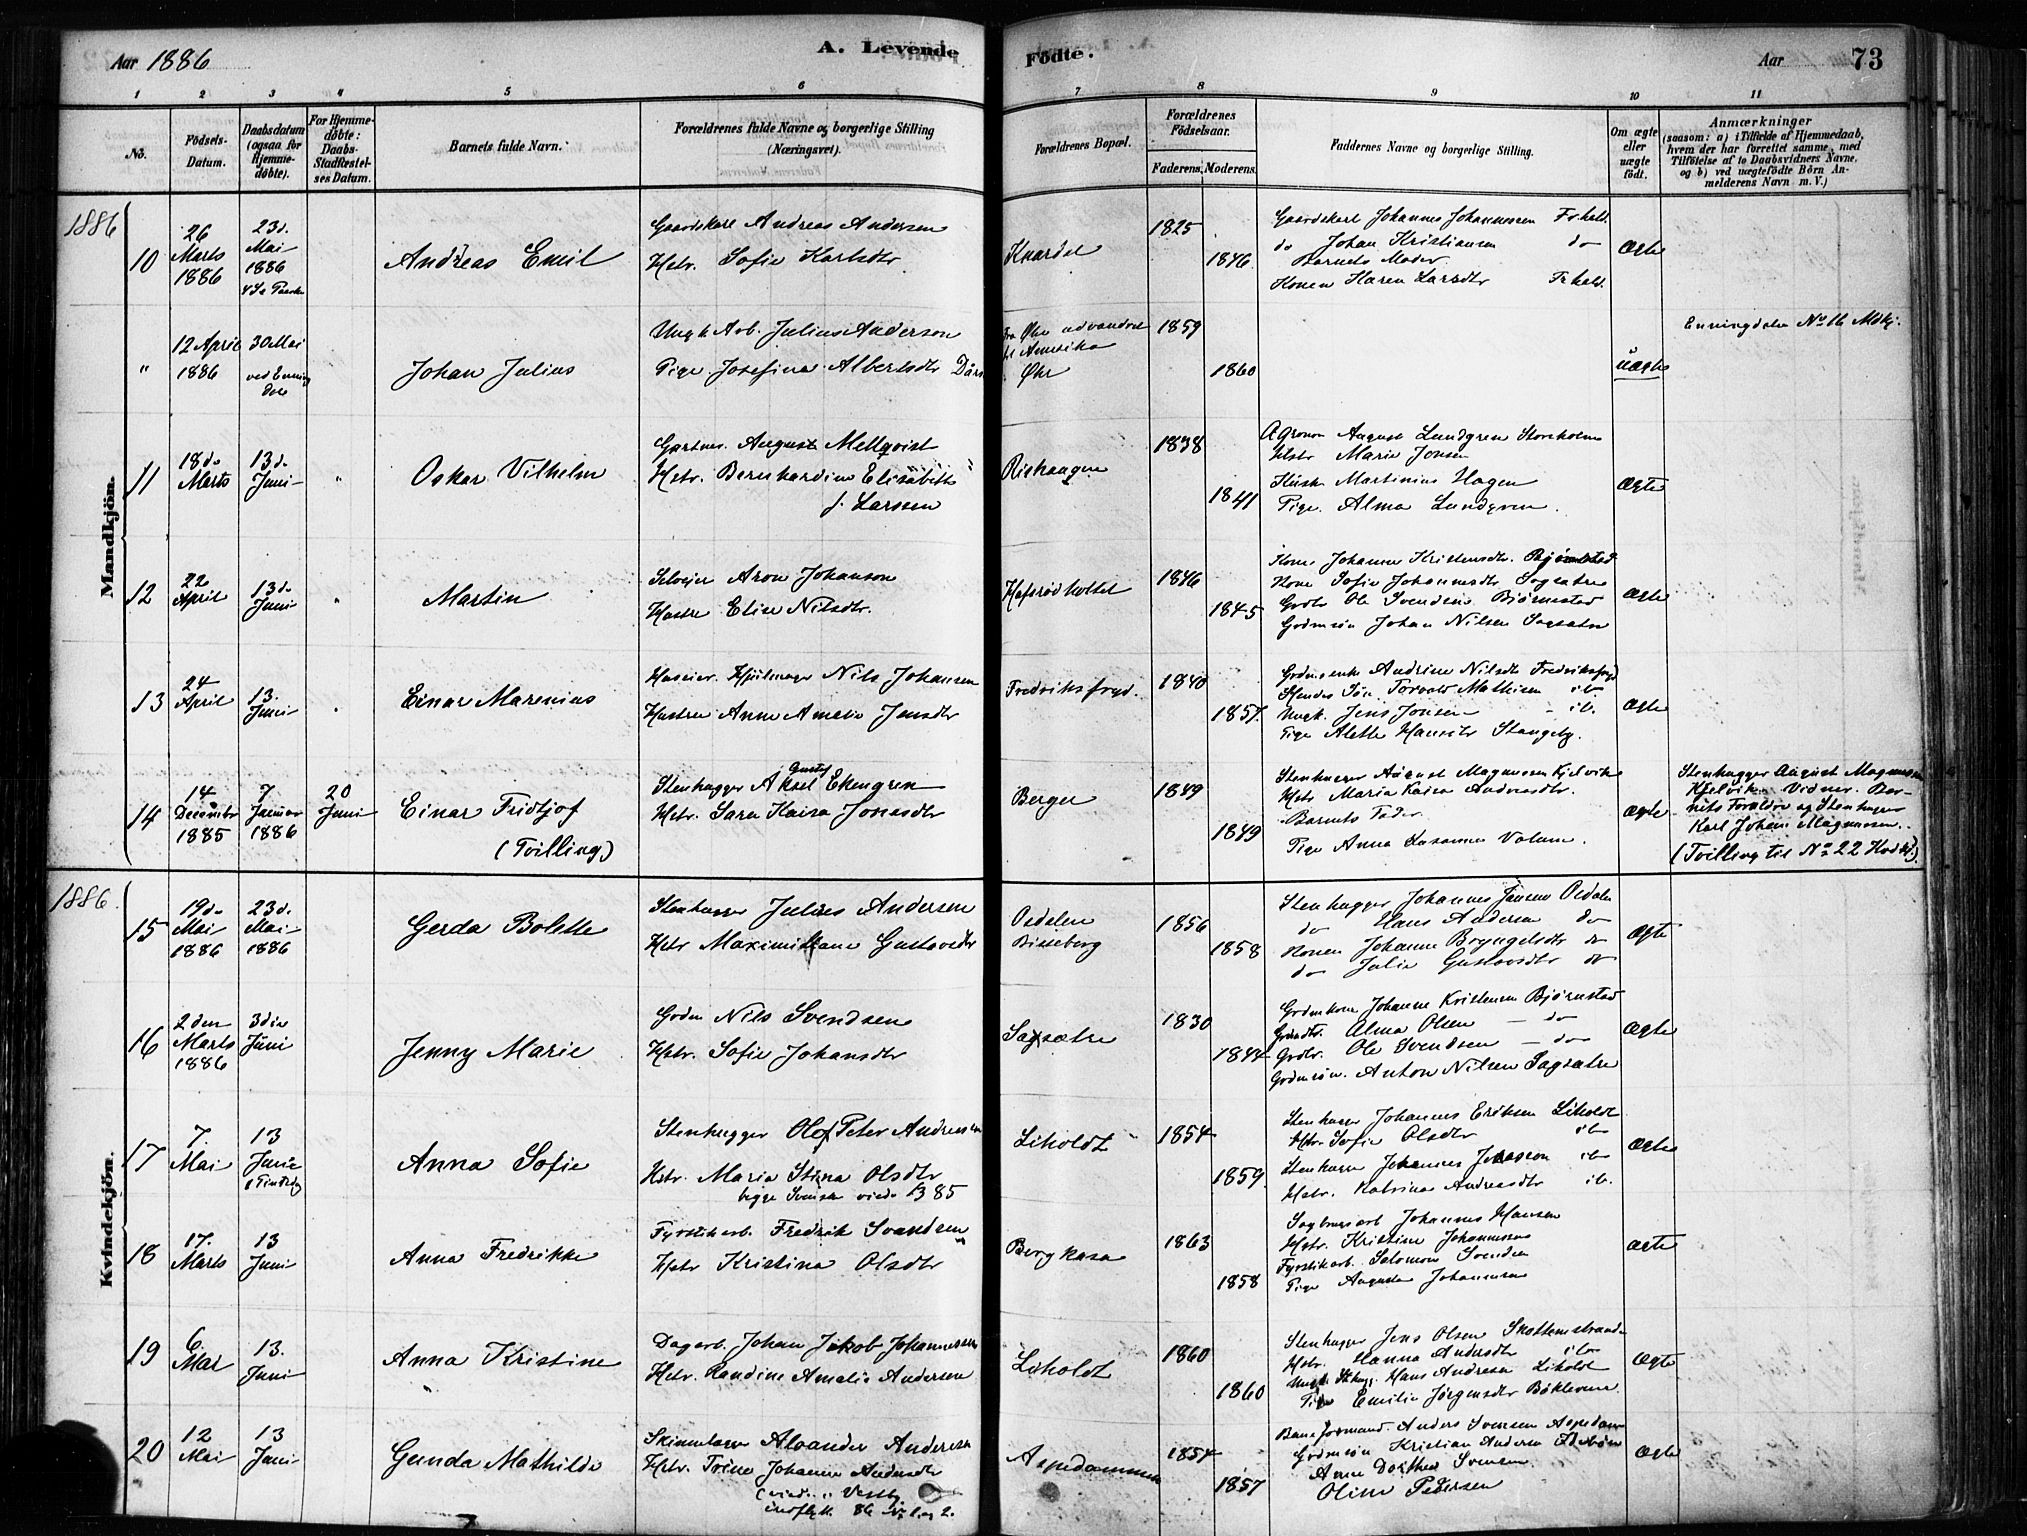 Aar 1886
A. Levende
Födte.
Aar
73
1 2 3 4 5 6 7 8 9 10 11
No.
Födsels-Datum.
Daabsdatum (ogsaa for Hjemme-döbte).
For Hjemme-döbte: Daabs-Stadfæstel-ses Datum.
Barnets fulde Navn.
Forældrenes fulde Navne og borgerlige Stilling (Næringsvei).
Forældrenes Bopæl.
Forældrenes Födselsaar.
Faderens. Moderens.
Faddernes Navne og borgerlige Stilling.
Om ægte eller uægte födt.
Anmærkninger
(saasom: a) i Tilfælde af Hjemmedaab,
hvem der har forrettet samme, med
Tilföielse af to Daabsvidners Navne,
og b) ved uægtefödte Börn An-
melderens Navn m. V.)
Mandkjön.
1886
10
26 Marts 1886
23d. Mai 1886
Andreas Emil
Gaardskarl Andreas Andersen
Hstr. Sofie Karlsdtr
1825
1846
Gaardskarl Johannes Johannessen Fr.hald.
do Johan Kristiansen do
Barnets Moder
Konen Karen Larsdtr Fr.hald.
ægte
"
12 April 1886
30 Mai
ved Enning
dale
Johan Julius
Ungk. Arb. Julius Anderson
Pige Josefine Albertsdtr
Fra Øhr udvandret
til Amerika
Øhr
1859
1860
uægte
Enningdalen No 16 Mdkj.
11
18de Marts
13de Juni
"
Oskar Vilhelm
Gartner August Mellqvist
Hstr. Bernhardine Elisabeth
f. Larssen
Rishaugen
1838
1841
Agronom August Lundgren
Hstr Marie Jonsen
Kusk Martinius Hagen
Pige Alma Lundgren.
ægte
12
22 April
13de Juni
"
Martin
Selveier Aron Johanson
Hustru Elise Nilsdtr.
1846
1845
Kone Johanne Kristensdtr. Bjørnstad
Kone Sofie Johannesdtr Sagsætre
Grdbr Ole Svendsen Bjørnestad
Grdmsøn Johan Nilsen Sagsætre
ægte
13
24 April
13. Juni
"
Einar Marenius
Huseier. Hjulmager Nils Johansen
Hustru Anne Amalie Jensdtr
Fredriksfryd.
1840
1857.
Andrine Nilsdtr Fredriksfryd
Hendes Søn Torvald Mathisen ib
Ungk. Jens Jonsen - ib.
Pige Alette Hansdtr Stangeby.
ægte
14
14 December 1885
7 Januar 1886
20 Juni
Einar Fridtjof
(Tvilling)
Stenhugger Aksel Gustaf Ekengren
Hstr. Sara Kaisa Jonasdtr
Berger
1849
1849
Stenhugger August Magnussen Kjelvik
Hstr Maria Kaisa Andreasdtr.
Barnets Fader
Pige Anna
ægte
Stenhugger August Magnussen
Kjelvik. Vidner. Bar-
nets Forældre og Stenhugger
Karl Johan Magnussen.
(Tvilling til No 22 Kvdkj.)
Kvindekjön.
1886.
15
19de Mai 1886
23d. Mai 1886
Gerda Bolette
Stenhugger Julius Andersen
Hstr Maximiliane Gustavsdtr
Osdalen
Risseberg
1856
1858
Stenhugger Johannes Jansen Osdalen
do Hans Andersen do
Konen Johanne Bryngelsdtr do
do Julie Gustavsdtr do
ægte
16
2den Marts 1886
3die Juni
Jenny Marie
Grdm Nils Svendsen
Hstr. Sofie Johansdtr
Sagsætre
1830
1844
Grdmkone Johanne Kristensen Bjørnstad
Alma Olsen - do
Grdbr. Ole Svendsen - do
Grdmsøn. Anton Nilsen Sagsætre
ægte
17
7. Mai
13 Juni
Anna Sofie
Stenhugger Olof Peter Andreassen
Hstr. Maria Stina Olsdtr
begge Svenske viede 1885
Liholdt
1854
1859.
Stenhugger Johannes Eriksen Liholdt
Hstr. Sofie Olsdtr ib
Stenhugger Johannes ib
Hstr. Katrina Andreasdtr ib.
ægte
18
17. Marts
13 Juni
Anna Fredrikke
Fyrstikarb. Fredrik Svendsen
Hstr Kristina Olsdtr
Bergkasa
1863
1858
Sagbrugsarb Johannes Hansen
Hstr. Kristine Johannessen
Fyrstikarb. Salomon Svendsen
Pige Augusta Johannesen
ægte
19
6. Mai
13. Juni
Anna Kristine
Dagarb. Johan Jakob Johannessen
Hstr. Randine Amalie Andersen
Liholdt
1860
1860
Stenhugger Jens Olsen
Hstr. Hanna Andersdtr ib
Ungk. Sthugg. Hans Andresen Liholdt
Pige Emilie Jørgensdtr
ægte
20
12 Mai
13 Juni
Gunda Mathilde
Alvander Andersen
Hstr. Trine Johanne Andersdtr
(viede i Vestby
indflytt. 86 No 1 og 2.
Aspedammen
1854
1857
Baneformand Anders Svensen Aspedam
Grdmsøn Kristian Andersen
Anne Dorthea Svensen
Oline Pedersen
ægte